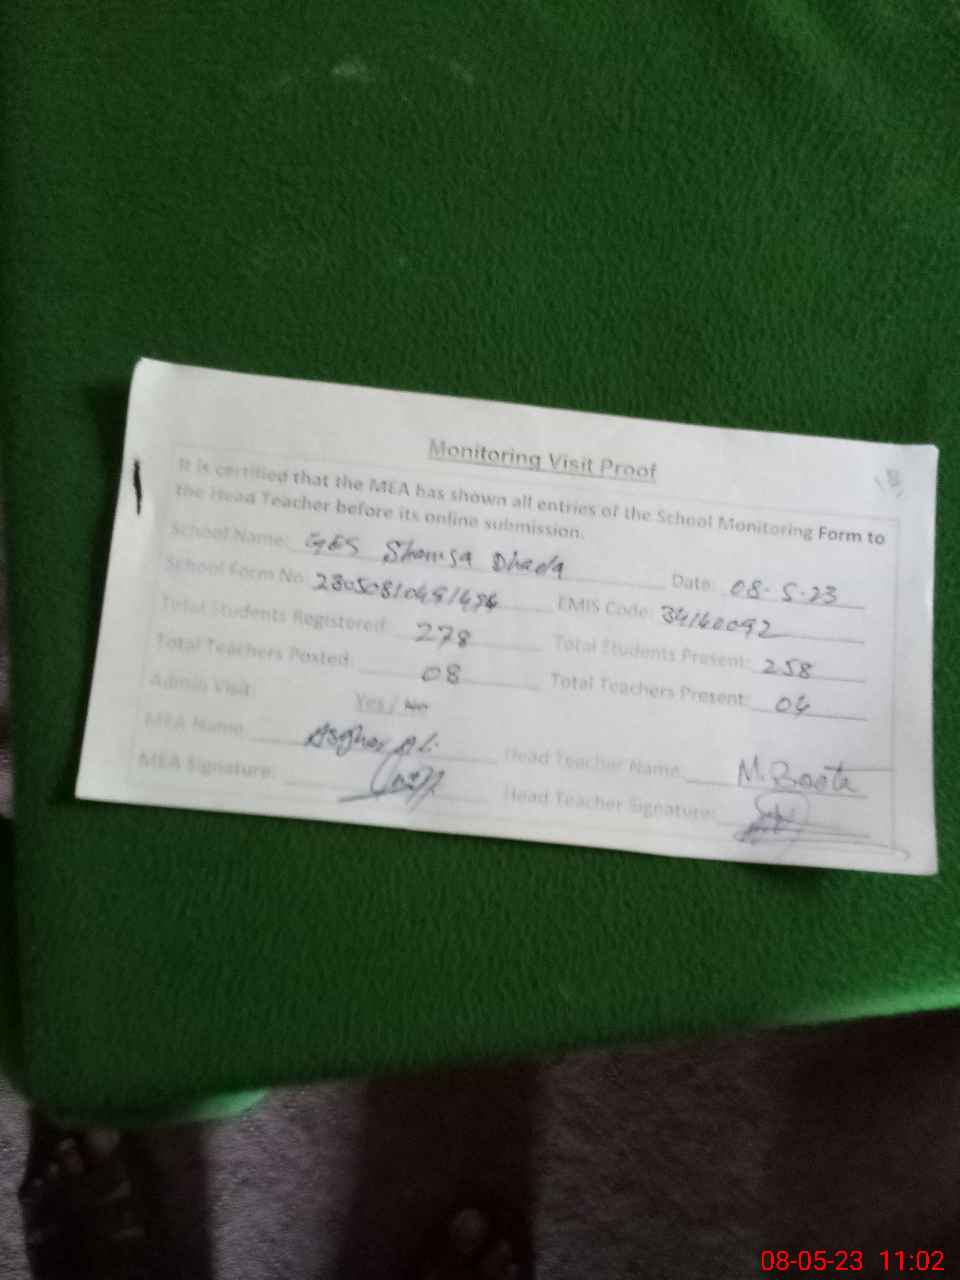 Monitoring Visit Proof
It is certified that the MEA has shown all entries of the School Monitoring Form to
the Head Teacher before its online submission.
School Name: GES Shamsa Dhada Date: 08-5-23
School Form No: EMIS Code: 34140092
Total Students Registered: 278 Total Students Present: 258
Total Teachers Posted: 08 Total Teachers Present: 04
Admin Visit: Yes / No
MEA Name: Asghar Ali Head Teacher Name: M. Boota
MEA Signature: Head Teacher Signature:
08-05-23 11:02